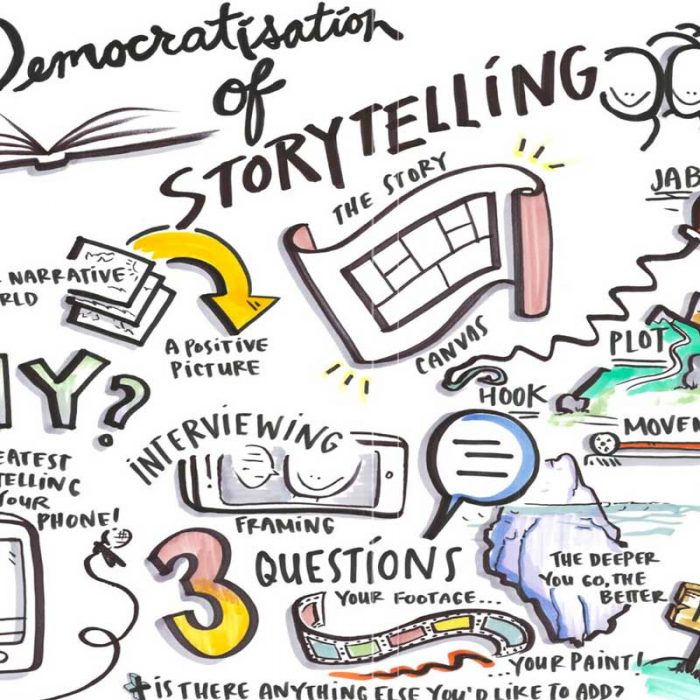 Democratisation
of
STORYTELLING
THE STORY
CANVAS
NARRATIVE
A POSITIVE
PICTURE
HOOK
PLOT
INTERVIEWING
FRAMING
PHONE!
3 QUESTIONS
THE DEEPER
YOU GO, THE
BETTER
YOUR FOOTAGE...
...YOUR PAINT!
+ IS THERE ANYTHING ELSE YOU'D LIKE TO ADD?